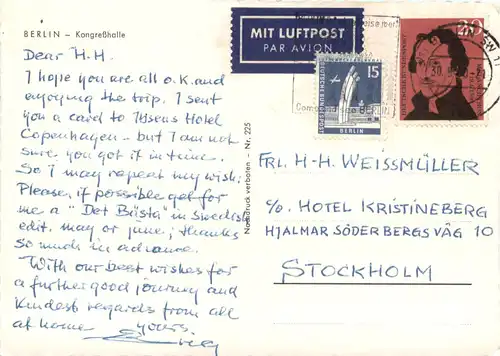 BERLIN – Kongreßhalle
MIT LUFTPOST
PAR AVION
20
15
DEUTSCHE BUNDESPOST
BERLIN
Dear H-H.
I hope you are all o.K. and
enjoying the trip. I sent
you a card to Ibsens Hotel
Copenhagen – but I am not
sure you got it in time.
So I may repeat my wish.
Please, if possible get for
me a "Det Bästa" in Swedish
edit. may or june; thanks
so much in advance.
With our best wishes for
a further good journey and
kindest regards from all
at home yours.
Nachdruck verboten – Nr. 225
FRL. H-H WEISSMÜLLER
c/o HOTEL KRISTINEBERG
HJALMAR SÖDERBERGS VÄG 10
STOCKHOLM